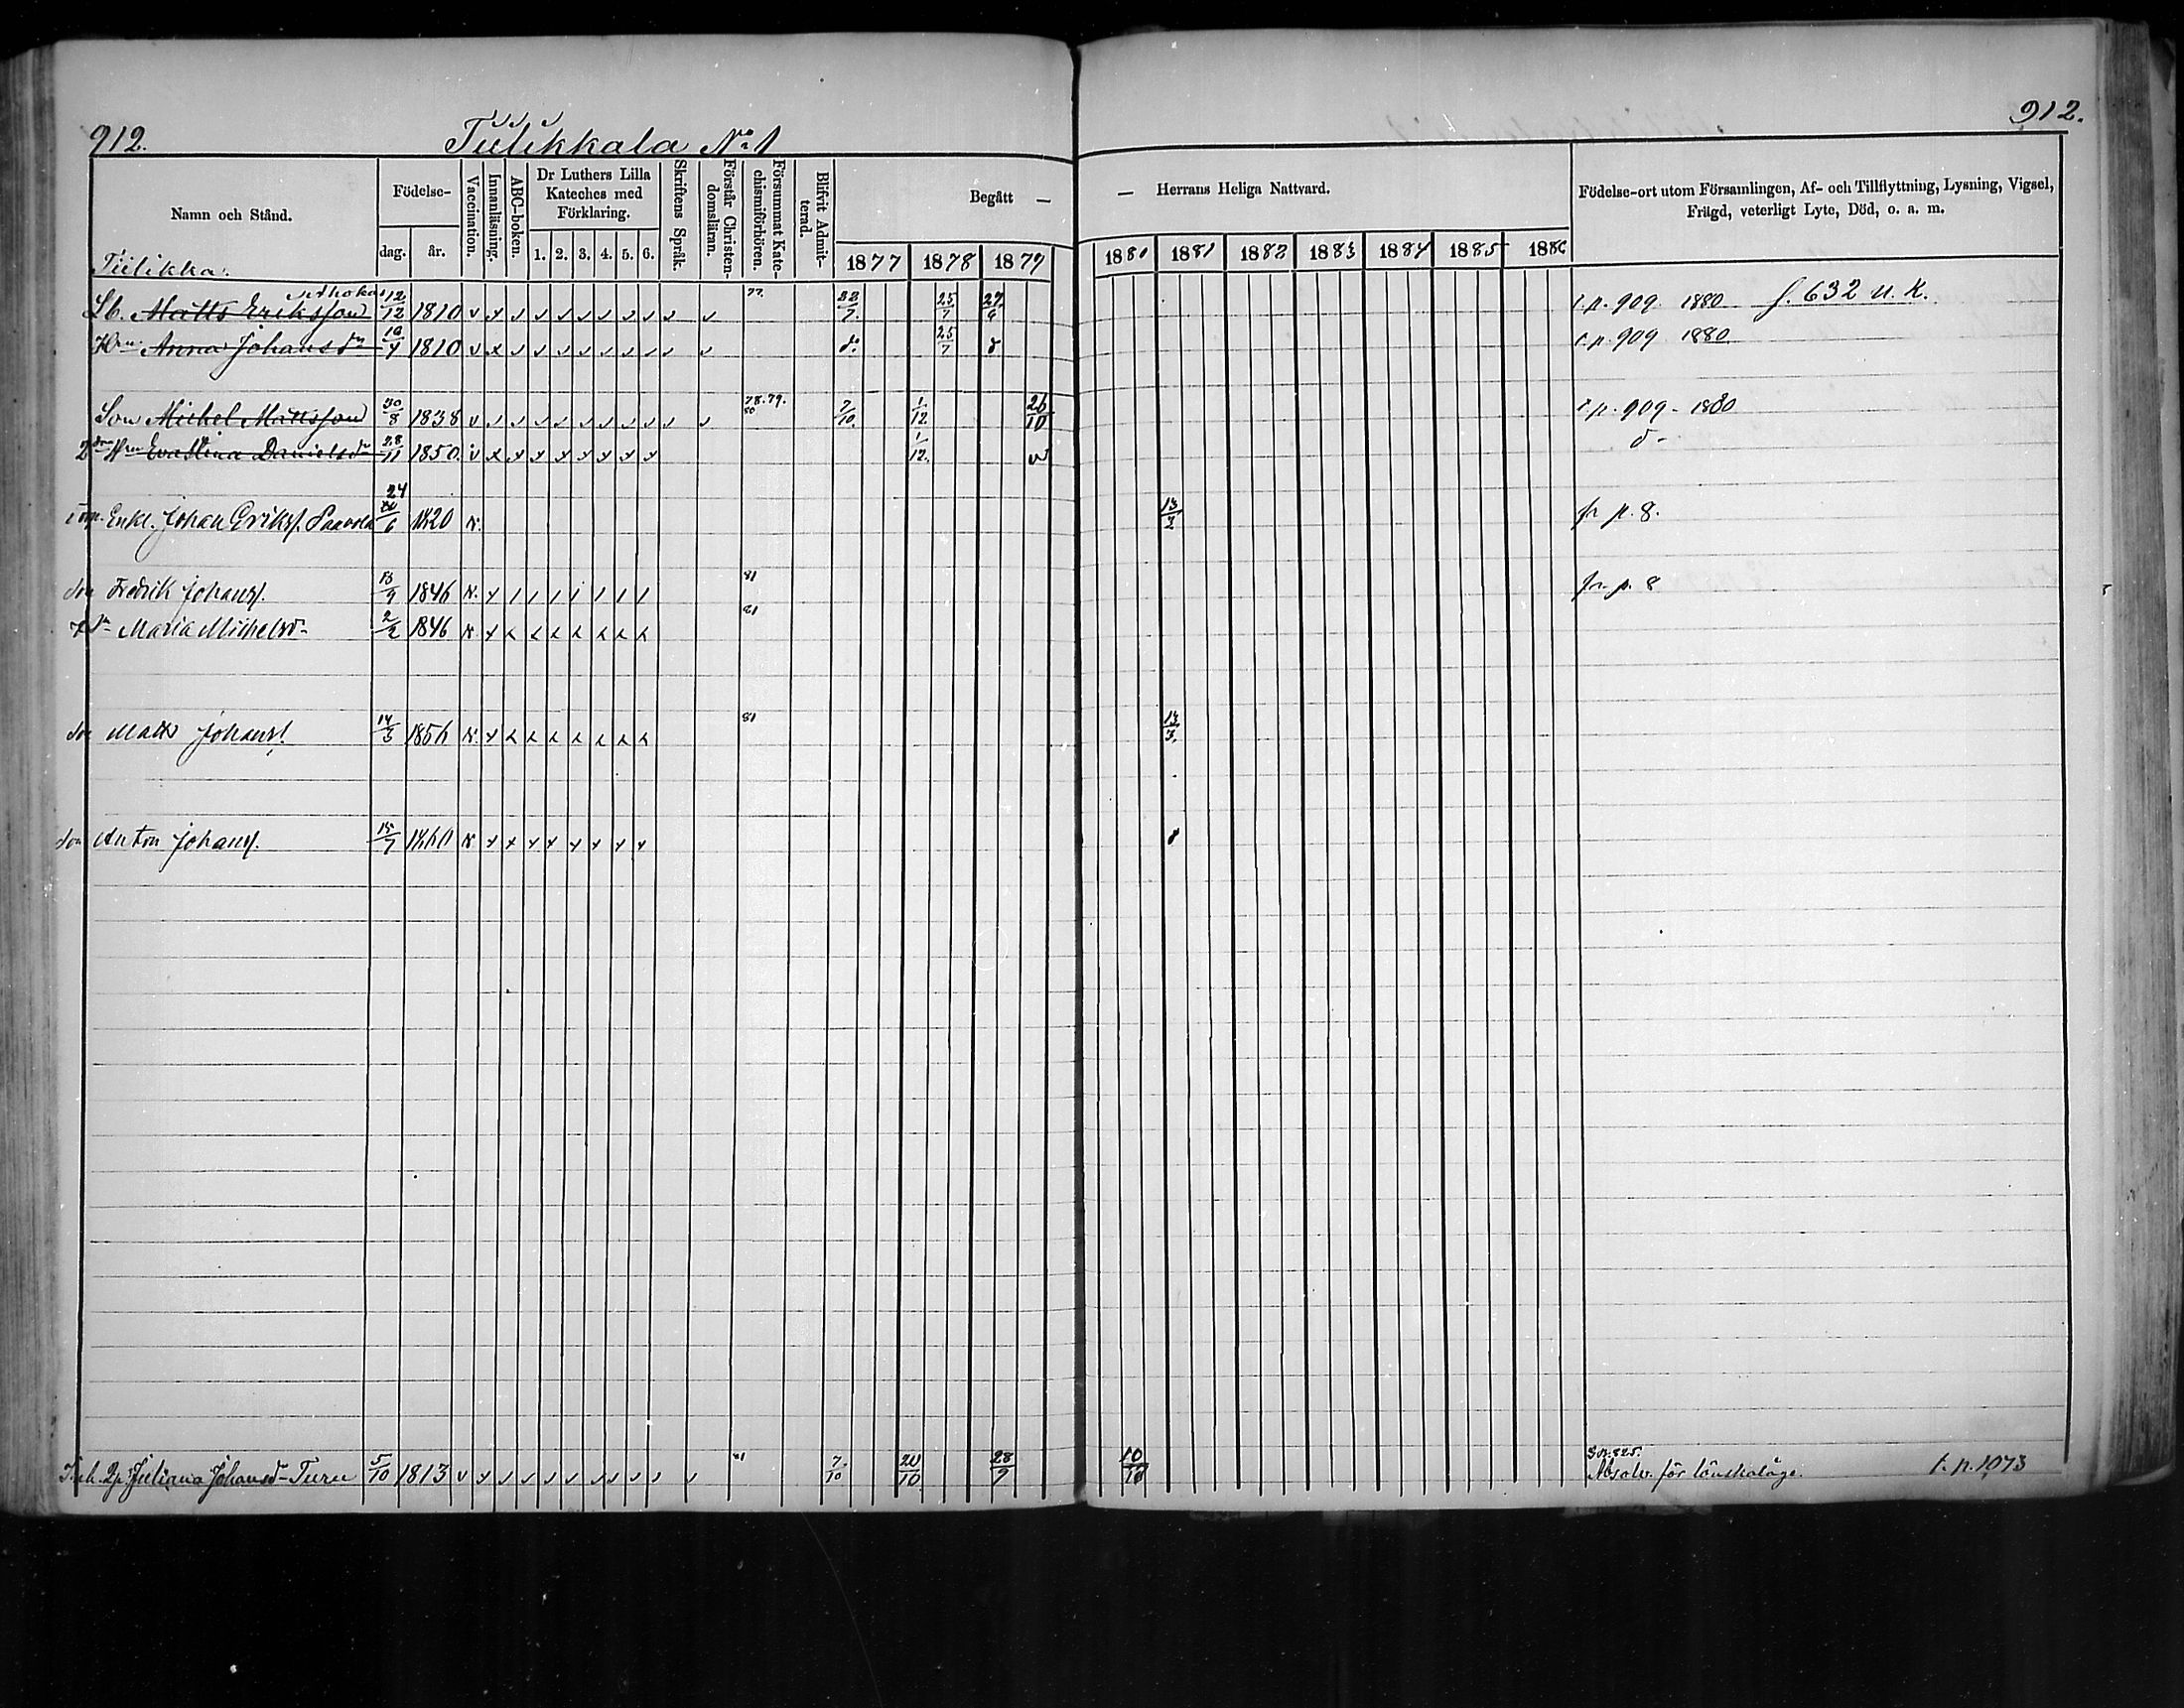 912.
Tiilikkala No 1
912.
Namn och Stånd.
Födelse-
dag.
år.
Vaccination.
Innanläsning.
ABC-boken.
Dr Luthers Lilla Kateches med Förklaring.
1. 2. 3. 4. 5. 6.
Skriftens Språk.
Förstår Christendomsläran.
Försummat Katechismiförhören.
Blifvit Admitterad.
Begått —
— Herrans Heliga Nattvard.
1877 1878 1879
1880 1881 1882 1883 1884 1885 1886
Födelse-ort utom Församlingen, Af- och Tillflyttning, Lysning, Vigsel, Frägd, veterligt Lyte, Död, o. a. m.
Tiilikka.
Lb. Matts Eriksson 12/12 1810 77. 25/7 t.p. 909. 1880 f. 632 u. K.
Hru Anna Johansdr 1810 25/7 t.p. 909 1880
Son Michel Mattsson 30/8 1838 78.79. 80 7/10. 1/12 26/10 t.p. 909 - 1880
2dra Hru Eva Stina Danielsdr 28/11 1850 1/12. d-
Enkl. Johan Eriks. Paavola 24 6 1820 fr p. 8.
Son Fredrik Johans. 1846 81 fr. p. 8
Maria Michelsdr 2/2 1846 81
Son Matts Johans. 14/3 1856 81 13/3.
Son Anton Johans. 15/7 1860
Inh. Juliana Johansd- Turu 5/10 1813 81 7/10 20/10 28/9 10/10 Absolv. för lönskaläge. t. p. 1073